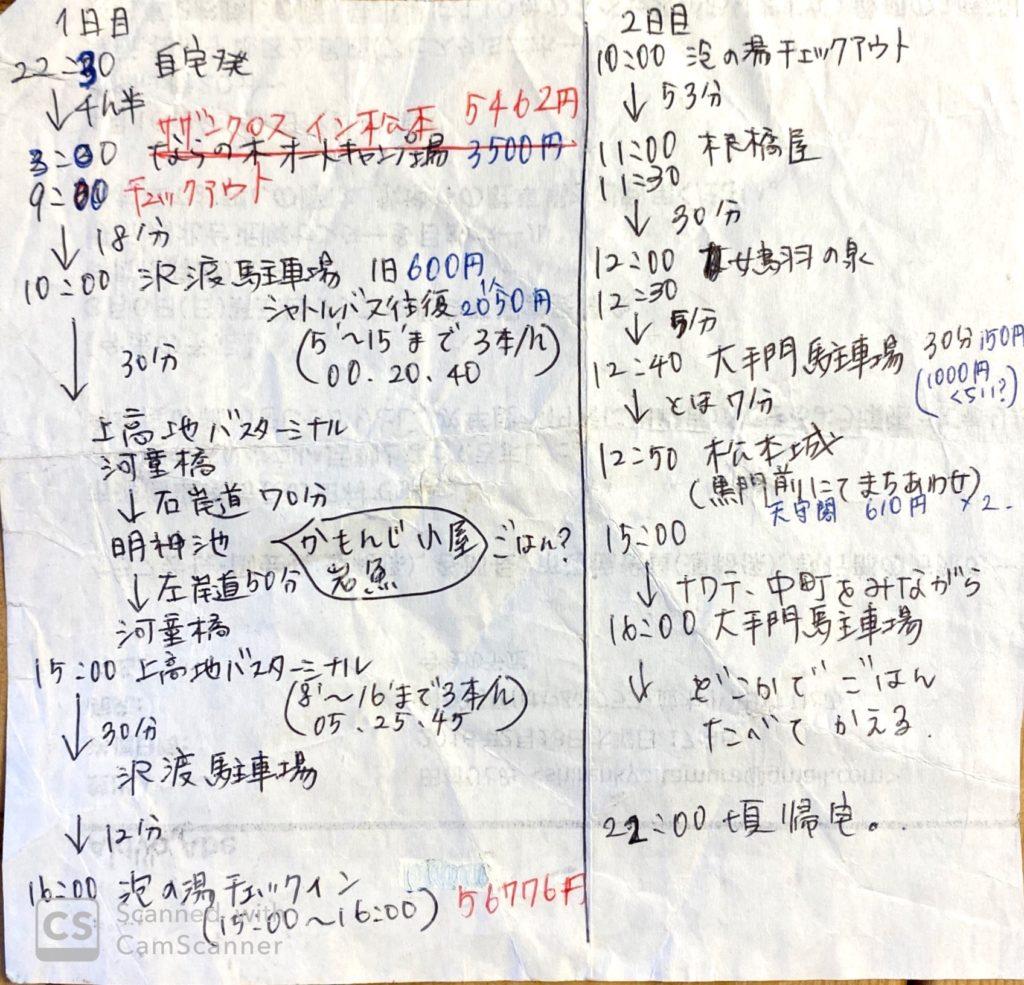 1日目
22:30 自宅発
↓4h半
サザンクロスイン松本 5462円
3:00 ならの木オートキャンプ場 3500円
9:00 チェックアウト
↓18分
10:00 沢渡駐車場 1日600円
シャトルバス往復2050円
(5'〜15'まで3本/h)
00.20.40
↓30分
上高地バスターミナル
河童橋
↓右岸道70分
明神池
かもんじ小屋
岩魚
ごはん?
↓左岸道50分
河童橋
15:00 上高地バスターミナル
(8'〜16'まで3本/h)
05.25.45
↓30分
沢渡駐車場
↓12分
16:00 泡の湯チェックイン
(15:00〜16:00)
56776円
2日目
10:00 泡の湯チェックアウト
↓53分
11:00 根橋屋
11:30
↓30分
12:00 女鳥羽の泉
12:30
↓5分
12:40 大手門駐車場 30分150円
(1000円
くらい?)
↓とほ7分
12:50 松本城
(黒門前にてまちあわせ)
天守閣 610円 ×2
15:00
↓ナワテ、中町をみながら
16:00 大手門駐車場
↓どこかでごはん
たべてかえる.
22:00頃帰宅。
CS Scanned with
CamScanner